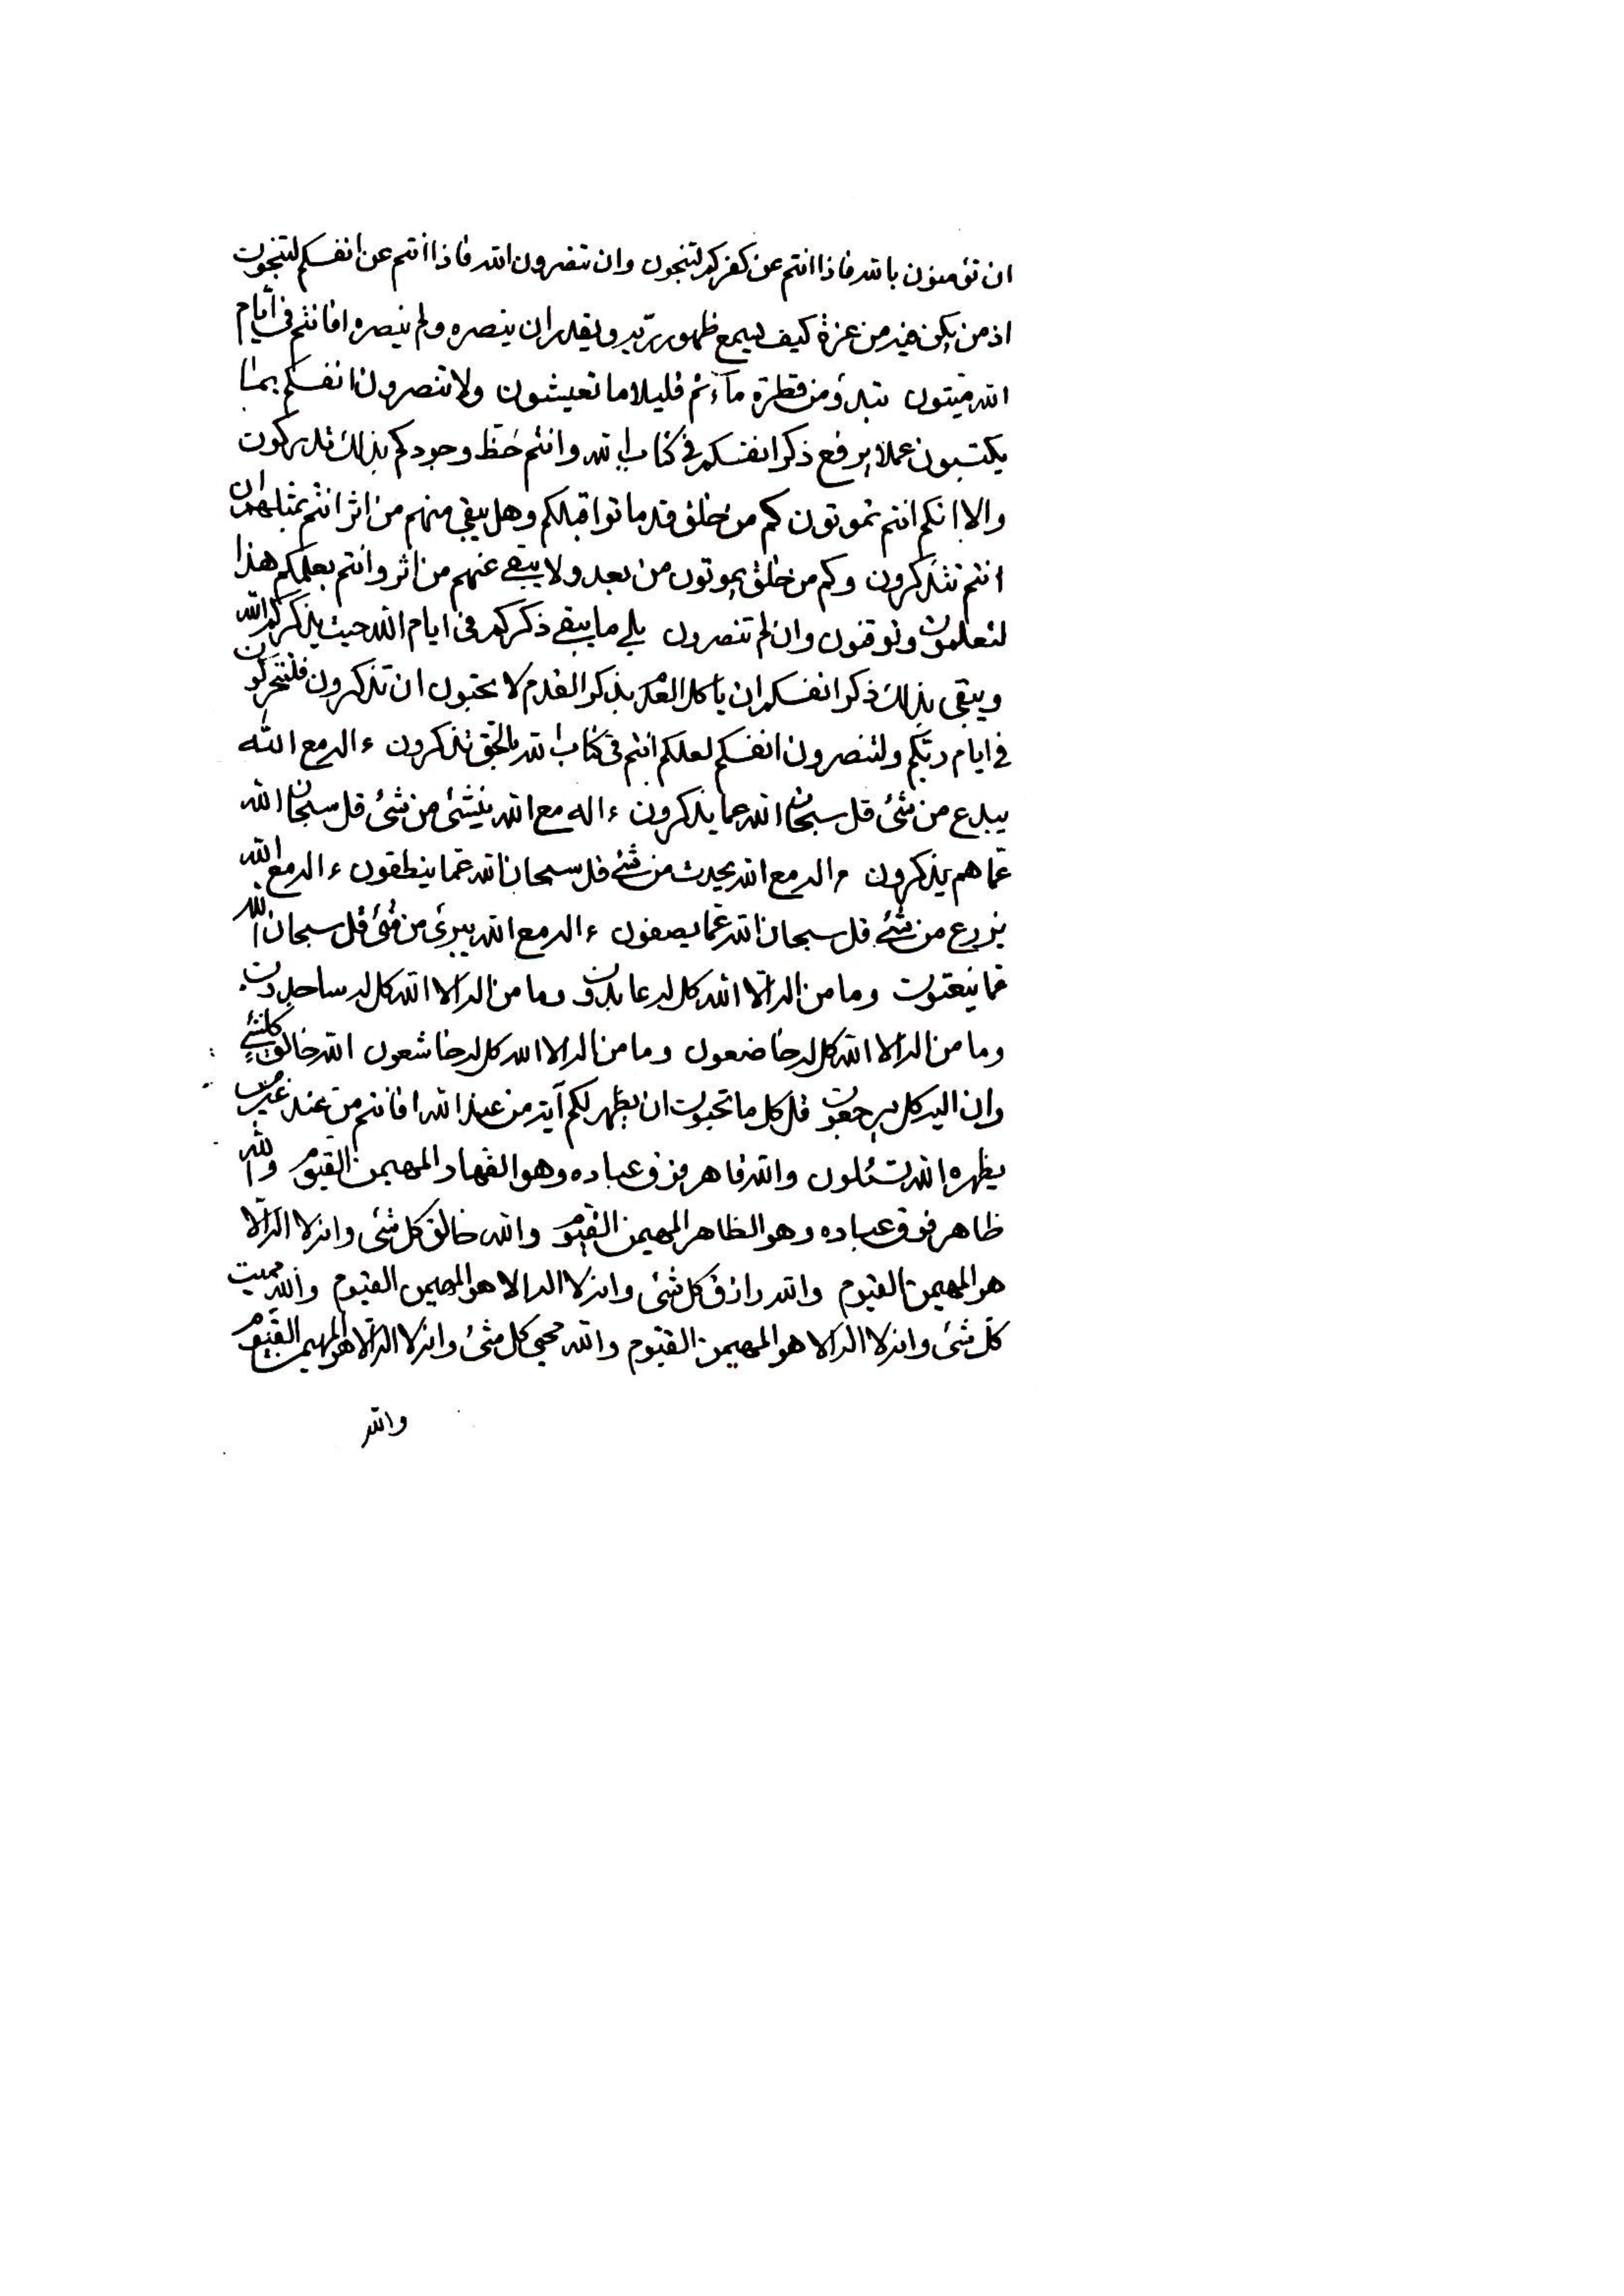 ان تؤمنون بالله فاذا انتم عن كفركم لتنجون وان تنصرون الله فاذا انتم عن انفسكم لتنجون
اذ من يكن فيه من عزة كيف يسمع ظهور ربه ويقدر ان ينصره ولم ينصره افانتم في ايام
الله ميتون تبدؤ من قطرة ماء ثم قليلا ما تعيشون ولا تنصرون انفسكم بما
يكتسبون عملا يرفع ذكر انفسكم في كتاب الله وانتم حظ وجودكم بذلك تدركون
والا انكم انتم تموتون كم من خلق قد ماتوا قبلكم وهل يبقي منهم من اثر انتم بمثلهم ان
انتم تتذكرون وكم من خلق يموتون من بعد ولا يبقي عنهم من اثر وانتم بعلمكم هذا
لتعلمون وتوقنون وان لم تنصرون بلي ما يبقي ذكركم في ايام الله حيث يذكركم الله
ويبقي بذلك ذكر انفسكم ان يا كل بذكر القدم لا تحبون ان تذكرون فلتتحركون
في ايام ربكم ولتنصرون انفسكم لعلكم انتم في كتاب الله بالحق تذكرون ءاله مع الله
يبدع من شئ قل سبحان الله عما يذكرون ءاله مع الله ينشئ من شئ قل سبحان الله
عما هم يذكرون ءاله مع الله يحدث من شئ قل سبحان الله عما ينطقون ءاله مع الله
يزرع من شئ قل سبحان الله عما يصفون ءاله مع الله يبرئ من شئ قل سبحان الله
عما ينعتون وما من اله الا الله كل له عابدون وما من اله الا الله كل له ساجدون
وما من اله الا الله كل له خاضعون وما من اله الا الله كل له خاشعون الله خالق كلشئ
وان اليه كل يرجعون قل كل ما تحبون ان يظهر لكم آية من عند الله افانتم من عند غير من
يظهره الله تسئلون والله قاهر فوق عباده وهو القهار المهيمن القيوم والله
ظاهر فوق عباده وهو الظاهر المهيمن القيوم والله خالق كل شئ وانه لا اله الا
هو المهيمن القيوم والله رازق كل شئ وانه لا اله الا هو المهيمن القيوم والله مميت
كل شئ وانه لا اله الا هو المهيمن القيوم والله محيي كل شئ وانه لا اله الا هو المهيمن القيوم
والله